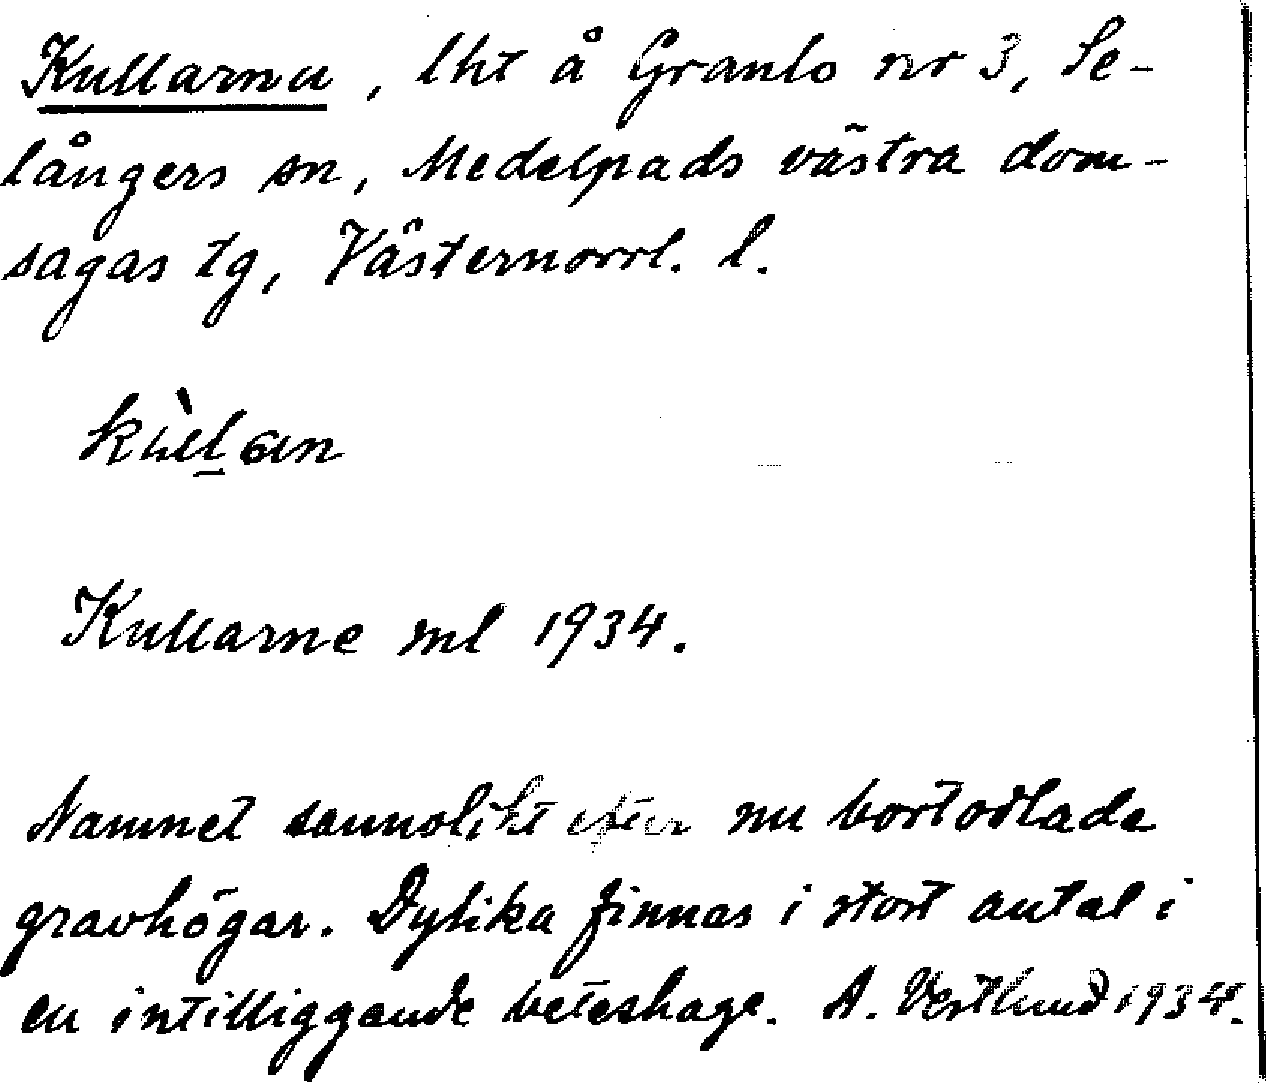 Kullarna, lht å Granlo nr 3, Se-
långers sn, Medelpads västra dom-
sagas tg, Västernorrl. l.
Kullarne ml 1934.
Namnet sannolikt efter nu bortodlade
gravhögar. Dylika finnas i stort antal i
en intilliggande beteshage. A. Westlund 1934.